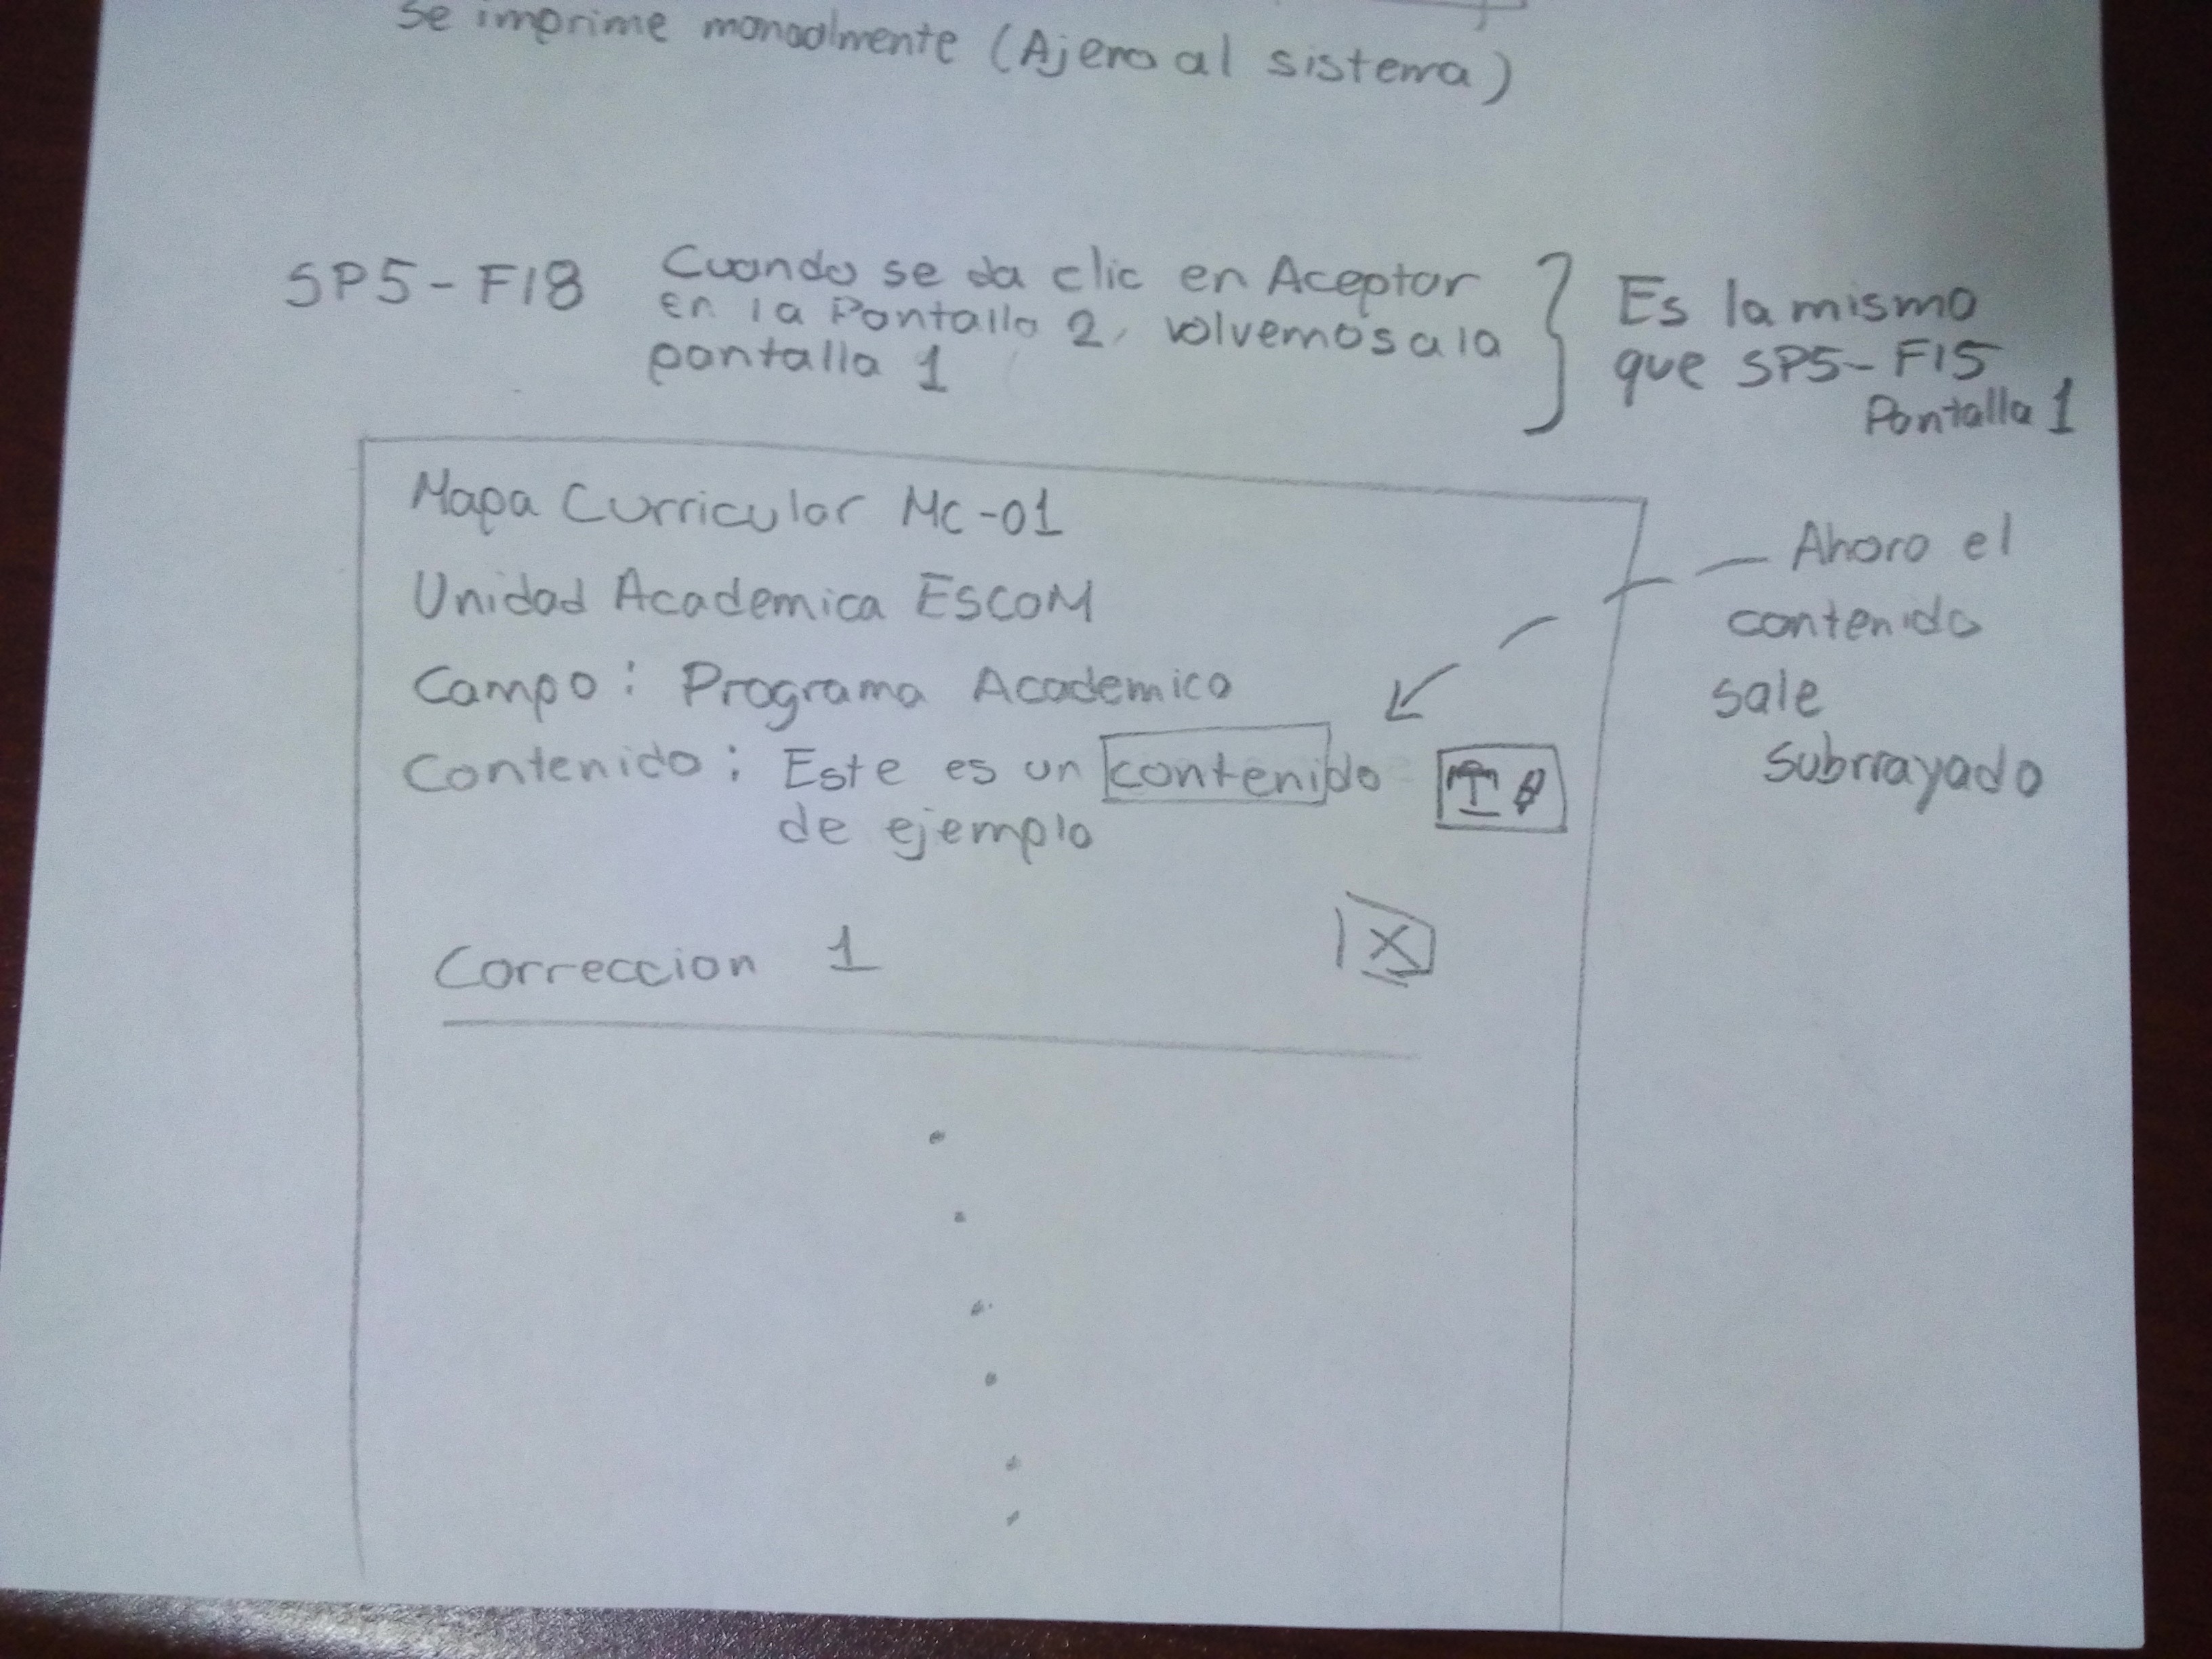 Se imprime manoalmente (Ajeno al sistema)
SP5-F18 Cuando se da clic en Aceptar
en la Pantalla 2, volvemos a la
pantalla 1
Es la mismo
que SP5-F15
Pantalla 1
Mapa Curricular MC-01
Unidad Academica ESCOM
Campo: Programa Academico
Contenido: Este es un contenido
de ejemplo
Ahora el
contenido
sale
subrrayado
Correccion 1
X